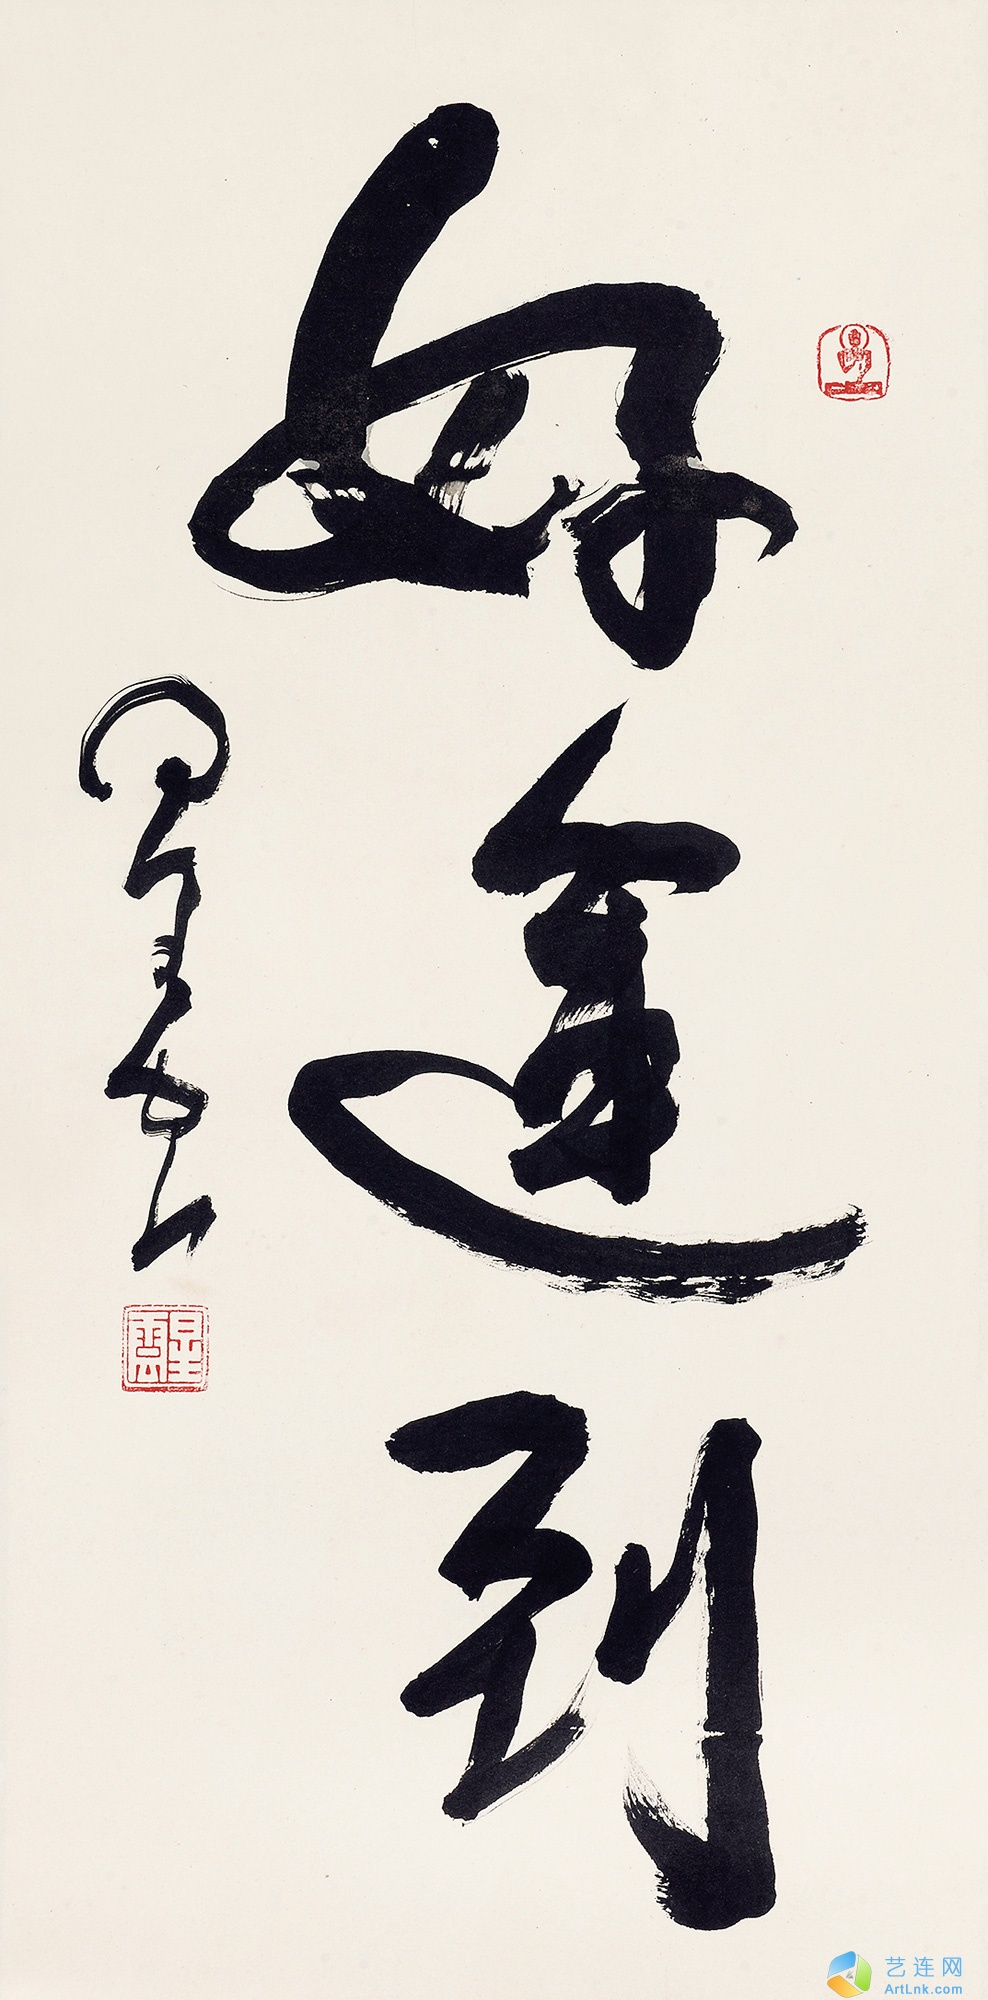 好運到
星雲
星雲
艺连网
ArtLnk.com